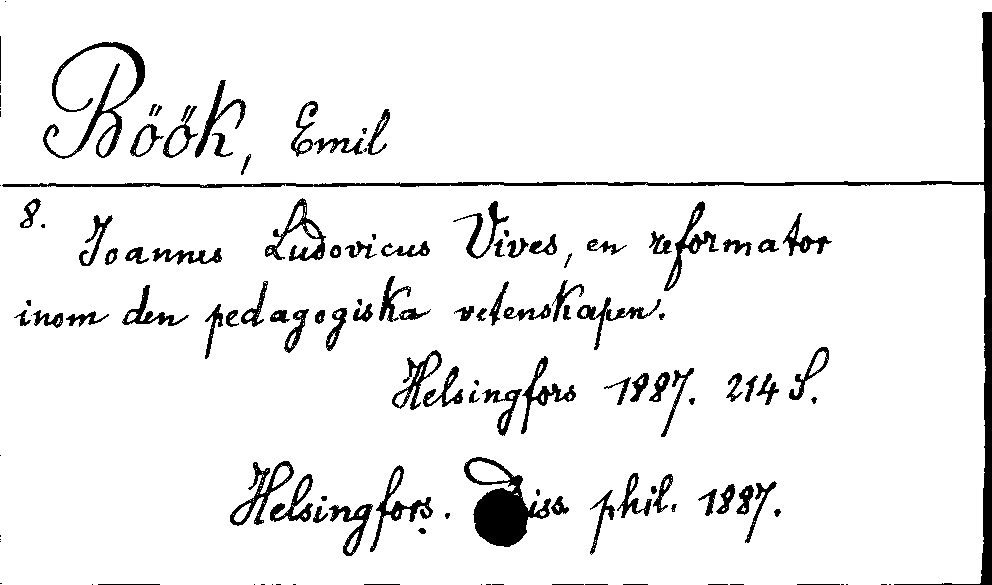 Böök, Emil
8. Joannes Ludovicus Vives, en reformator
inom den pedagogiska vetenskapen.
Helsingfors 1887. 214 S.
Helsingfors. Diss. phil. 1887.